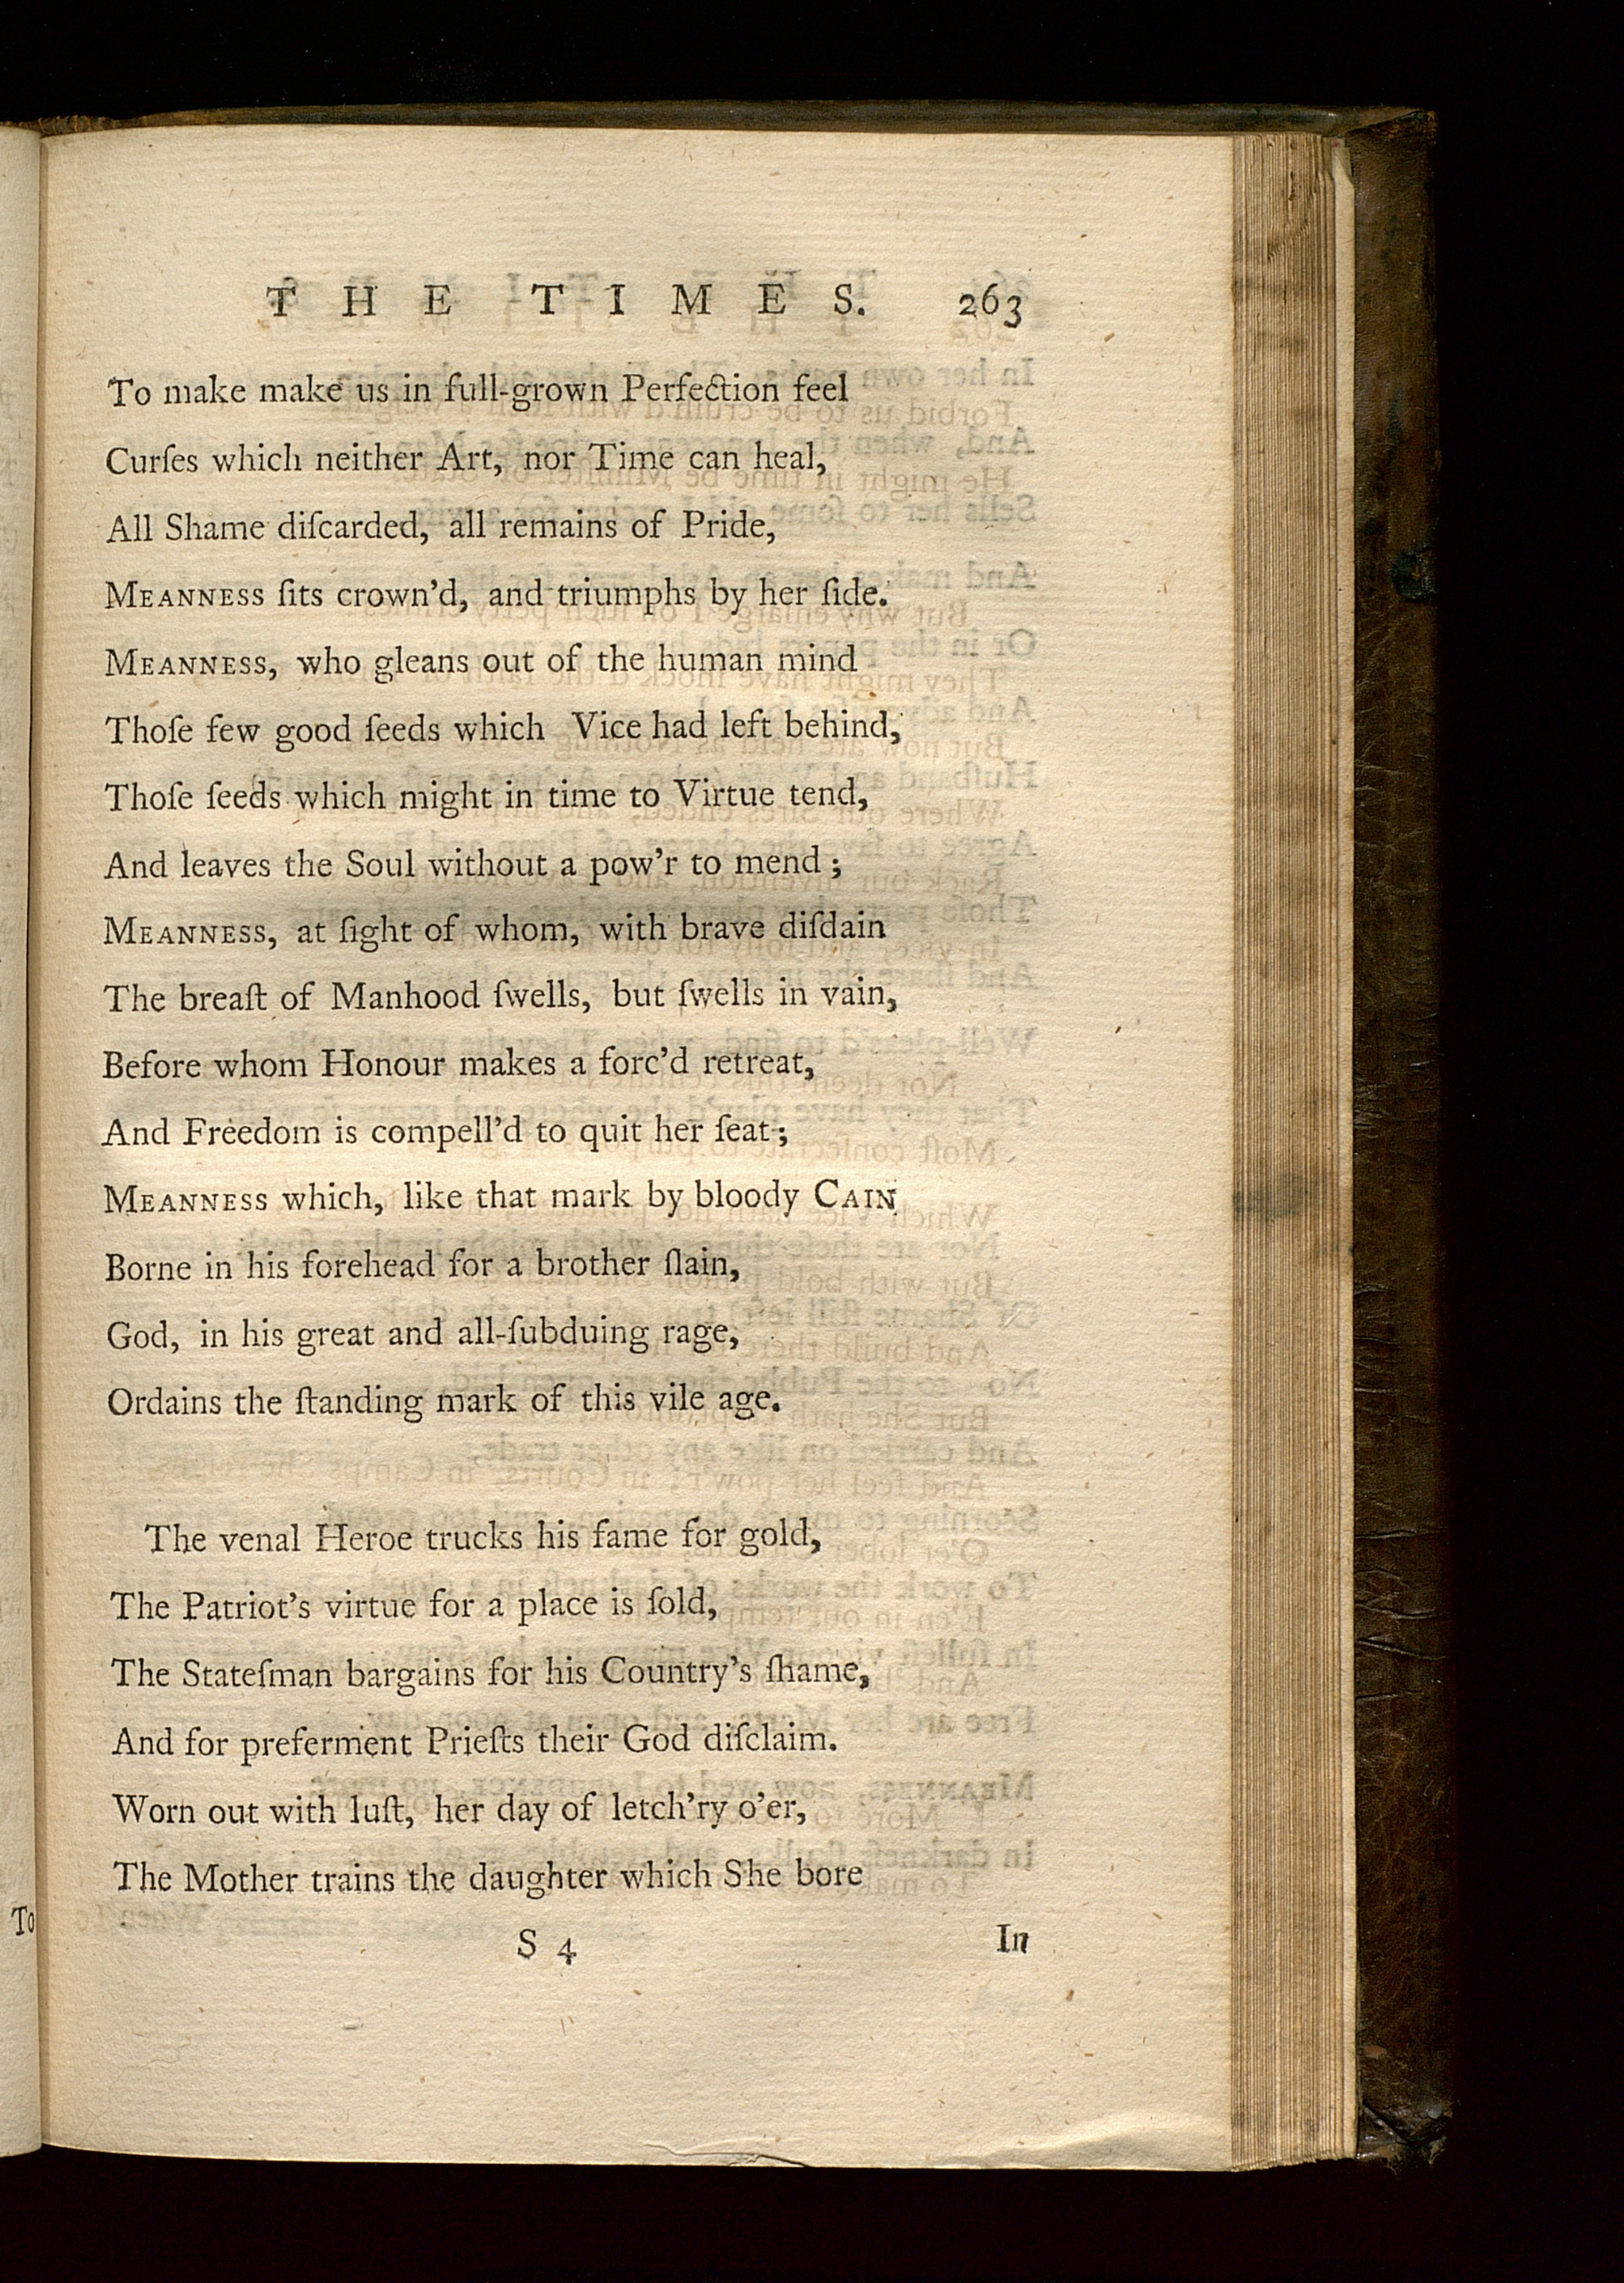 THE TIMES. 263
To make make us in full-grown Perfection feel
Curſes which neither Art, nor Time can heal,
All Shame diſcarded, all remains of Pride,
MEANNESS ſits crown'd, and triumphs by her ſide.
MEANNESS, who gleans out of the human mind
Thoſe few good ſeeds which Vice had left behind,
Thoſe ſeeds which might in time to Virtue tend,
And leaves the Soul without a pow'r to mend;
MEANNESS, at ſight of whom, with brave diſdain
The breaſt of Manhood ſwells, but ſwells in vain,
Before whom Honour makes a forc'd retreat,
And Freedom is compell'd to quit her ſeat;
MEANNESS which, like that mark by bloody CAIN
Borne in his forehead for a brother ſlain,
God, in his great and all-ſubduing rage,
Ordains the ſtanding mark of this vile age.
The venal Heroe trucks his fame for gold,
The Patriot's virtue for a place is ſold,
The Stateſman bargains for his Country's ſhame,
And for preferment Prieſts their God diſclaim.
Worn out with luſt, her day of letch'ry o'er,
The Mother trains the daughter which She bore
To
S 4 In